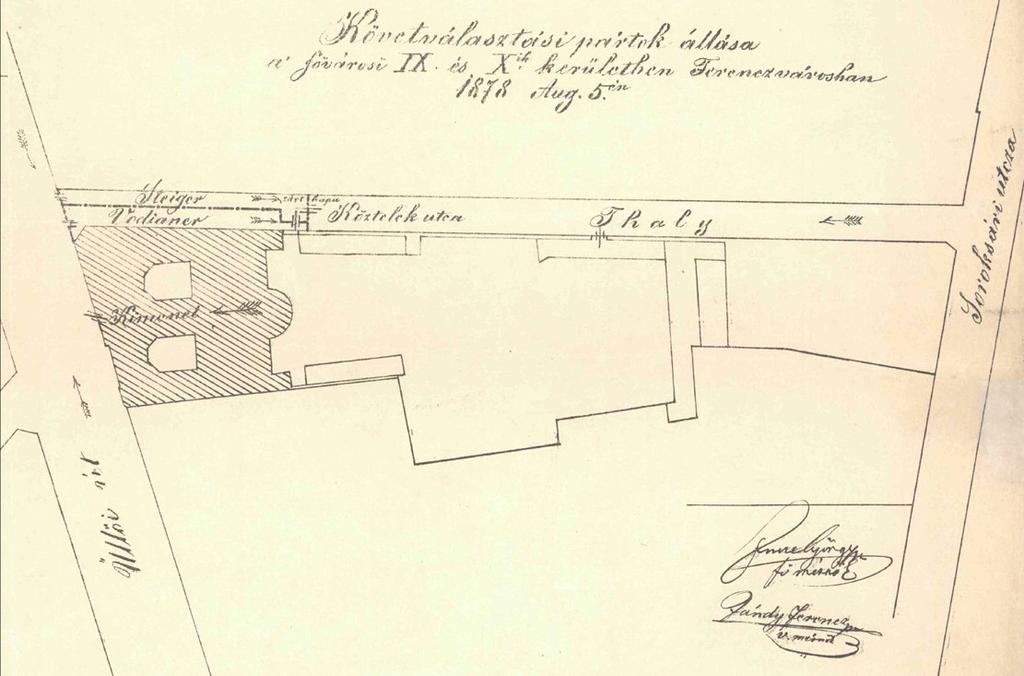 Követválasztási pártok állása
a' fővárosi IX. és X.ik kerületben Ferenczvárosban
1878 Aug. 5.én
Steiger
zárt kapu
Vodianer
Köztelek utca
Thaly
Soroksári utcza
Kimenet
Üllői út
Emre György
fő mérnök
Pándy Ferencz
v. mérnök